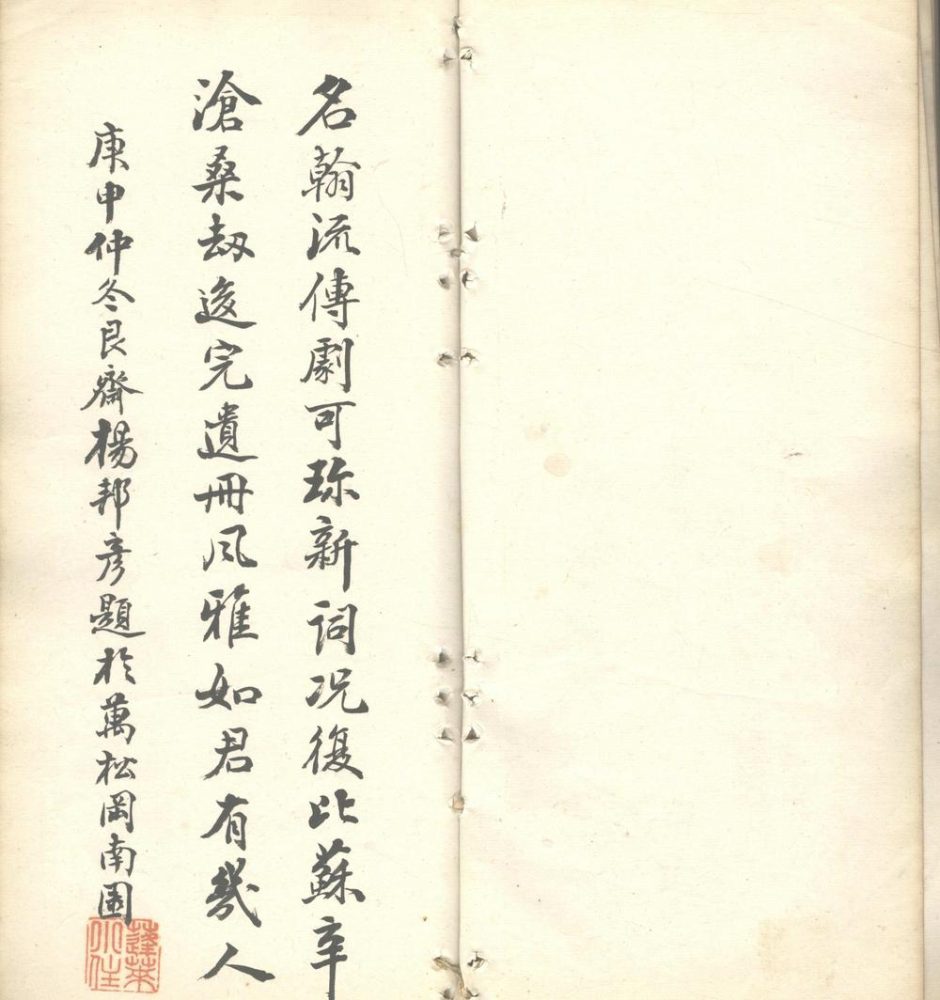 名翰流傳劇可珎新詞况復比蘇辛
滄桑劫後完遺冊風雅如君有幾人
庚申仲冬艮齋楊邦彥題於萬松岡南園
蓬萊小住